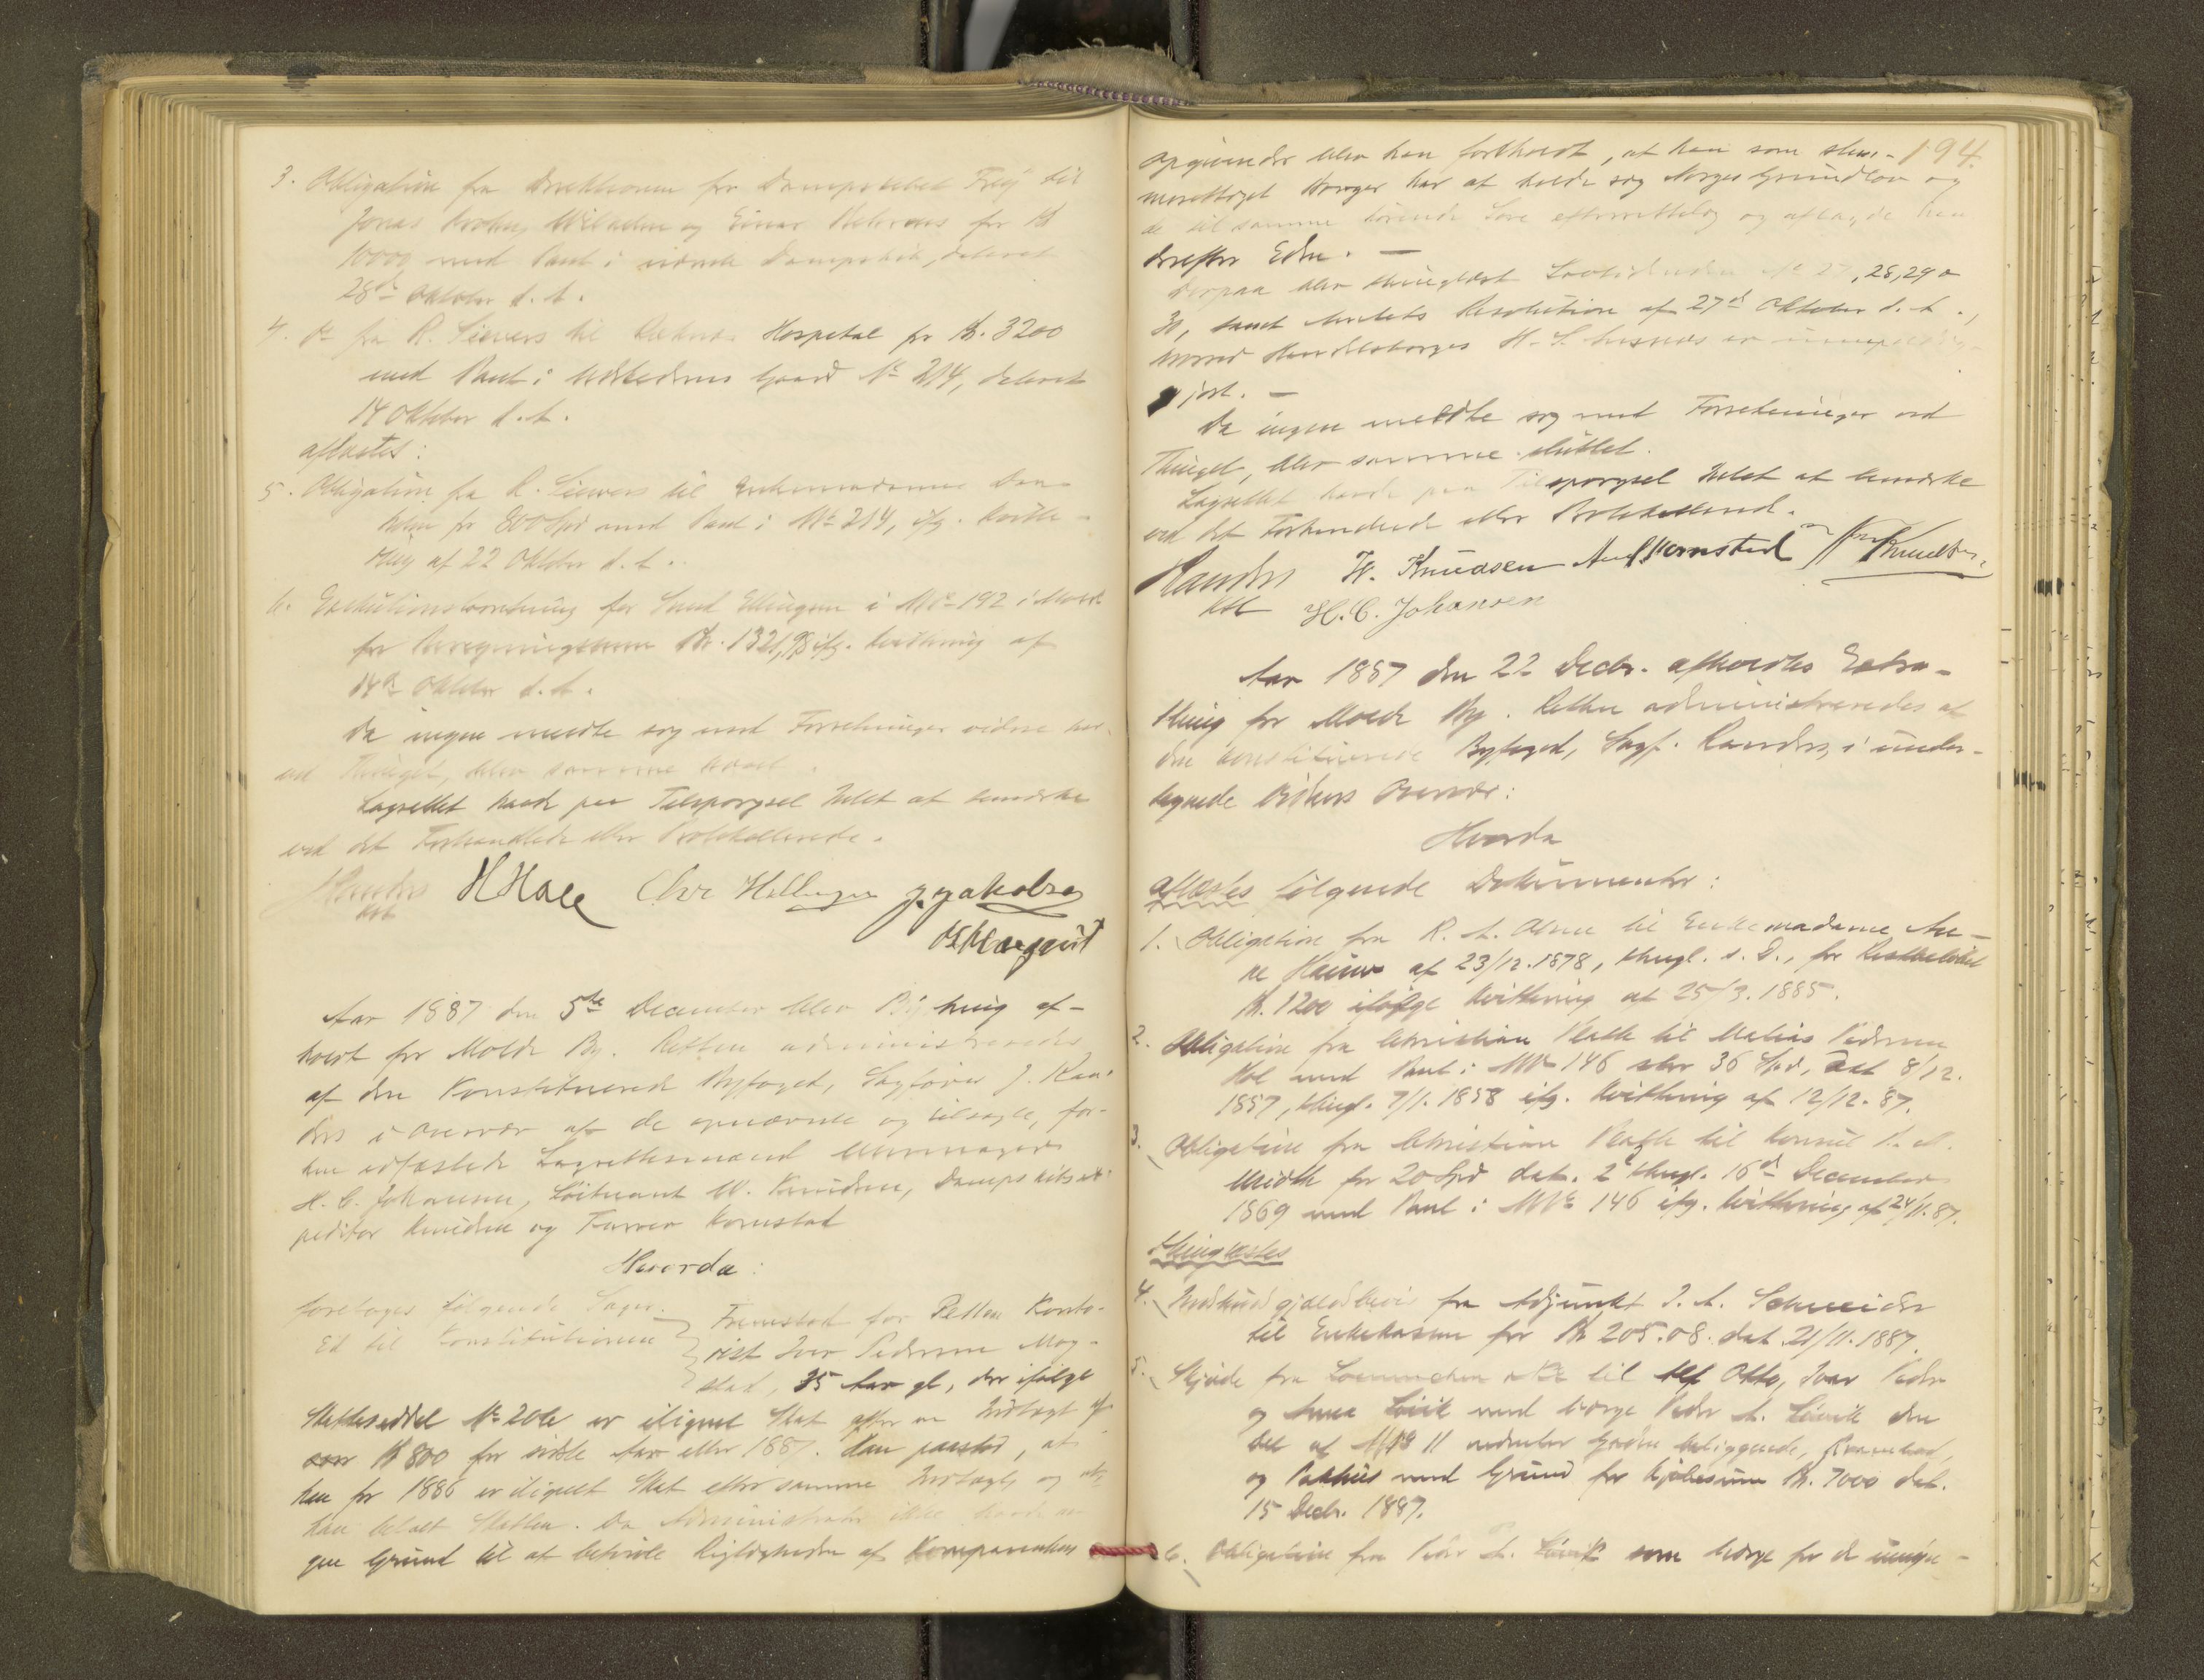 3. Obligation fra Direktionen for Dampskibet Frey til
Jonas og Einar for Kr
10000 med Pant i nævnte Dampskib, dateret
28de Oktober d. A.
4. Do fra R. Sievers til Hospital for Kr. 3200
med Pant i Gaard No 214, dateret
14 Oktober d. A.
aflæstes:
5. Obligation fra R. Sievers til Enkemadame Dan-
for 800 Spd med Pant i No 214, ifg. Kvitte-
ring af 22 Oktober d. A.
6. Exekutionsforretning hos Knud Ellingsen i MNo 192 i Molde
for Kr. 1321,98 ifg. Kvittering af
14de Oktober d. A.
Da ingen meldte sig med Forretninger videre her
ved Thinget, blev samme hævet.
Lagrettet havde paa Tilspørgsel Intet at bemærke
ved det Forhandlede eller Protokollerede.
Randers H Hoel Chr Hellingsen J. Jakobsen
kst
Aar 1887 den 5te December blev Bything af-
holdt for Molde By. Retten administreredes
af den konstituerede Byfoged, Sagfører J. Ran-
ders i Overvær af de opnævnte og tilsagte, for-
hen edfæstede Lagrettesmænd Uhrmager
H. C. Johansen, Løitnant W. Knudsen, Dampskibsex-
peditør Knudsen og Farver Kornstad
Hvorda:
foretoges følgende Sager.
Ed til Konstitutionen } Fremstod for Retten Konto-
rist Iver Pedersen Mog-
stad, 35 Aar gl., der ifølge
Skatteseddel No 206 er ilignet Skat efter en Indtægt af
Kr 800 for sidste Aar eller 1887. Han paastod, at
han for 1886 er ilignet Skat efter samme Indtægt, og at
han betalt Skatten. Da Administrator ikke havde no-
gen Grund til at betvivle Rigtigheden af Komparentens
194.
Opgivender blev han foreholdt, at han som stem-
meretiget Borger har at holde sig Norges Grundlov og
de til samme hørende Love efterrettelig og aflagde han
derefter Eden. —
Derpaa blev thinglæst Lovtidenden No 27, 28, 29 o
30, samt Amtets Resolution af 27de Oktober d. A.,
hvorved Handelsborger H. S. er umyndig-
gjort. —
Da ingen meldte sig med Forretninger ved
Thinget, blev samme sluttet.
Lagrettet havde paa Tilspørgsel Intet at bemærke
ved det Forhandlede eller Protokollerede.
Randers W. Knudsen Kornstad Knudsen
kst H. C. Johansen
Aar 1887 den 22 Decbr. afholdtes Extra-
thing for Molde By. Retten administreredes af
den konstituerede Byfoged, Sagf. Randers, i under-
tegnede Vidners Overvær:
Hvorda
aflæstes følgende Dokumenter:
1. Obligation fra R. A. til Enkemadame An-
ne af 23/12.1878, thingl. s. D., for Restbeløbet
Kr. 1200 ifølge Kvittering af 25/3.1885.
2. Obligation fra Christian til Matias Pedersen
Hol med Pant i MNo 146 stor 36 Spd, dat 8/12.
1857, thingl. 7/1.1858 ifg. Kvittering af 12/12.87.
3. Obligation fra Christian til Konsul P. A.
for 20 Spd dat. 2de thingl. 16de December
1869 med Pant i MNo 146 ifg. Kvittering af 24/11.87.
thinglæstes
4. fra Adjunkt J. A. Schneider
til Enkekassen for Kr 205.08. dat. 21/11.1887.
5. Skjøde fra til Otto, Ivar Peder
og Anna med Værge Peder A. den
Del af MNo 11 nedenfor Gaden beliggende,
og Pakhus med Grund for Kjøbesum Kr. 7000 dat.
15 Decbr. 1887.
6. Obligation fra Peder A. som Værge for de umyn-